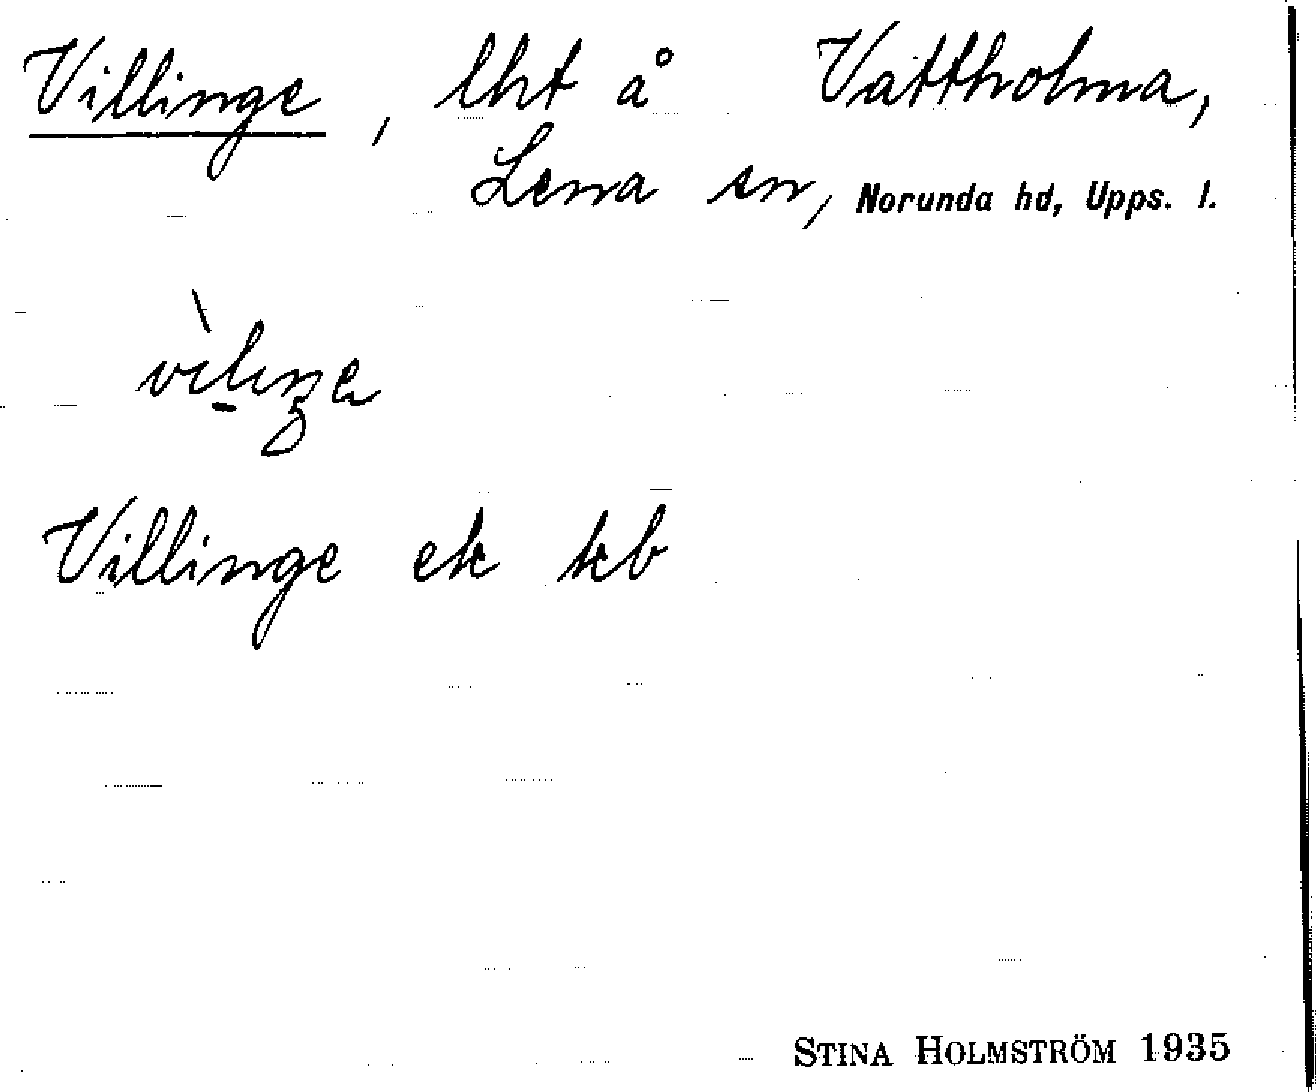 Villinge, lht å Vattholma,
Lena sn, Norunda hd, Upps. l.
Villinge ek kb
STINA HOLMSTRÖM 1935